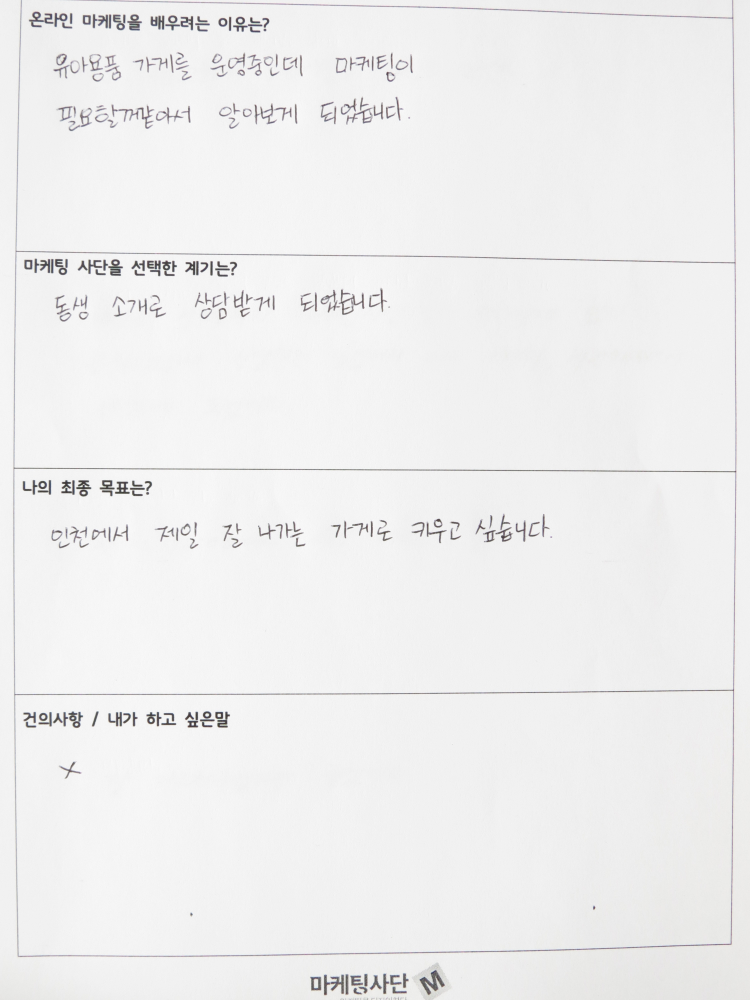 온라인 마케팅을 배우려는 이유는?
유아용품 가게를 운영중인데 마케팅이
필요할꺼같아서 알아보게 되었습니다.
마케팅 사단을 선택한 계기는?
동생 소개로 상담받게 되었습니다.
나의 최종 목표는?
인천에서 제일 잘 나가는 가게로 키우고 싶습니다.
건의사항 / 내가 하고 싶은말
X
마케팅사단 M